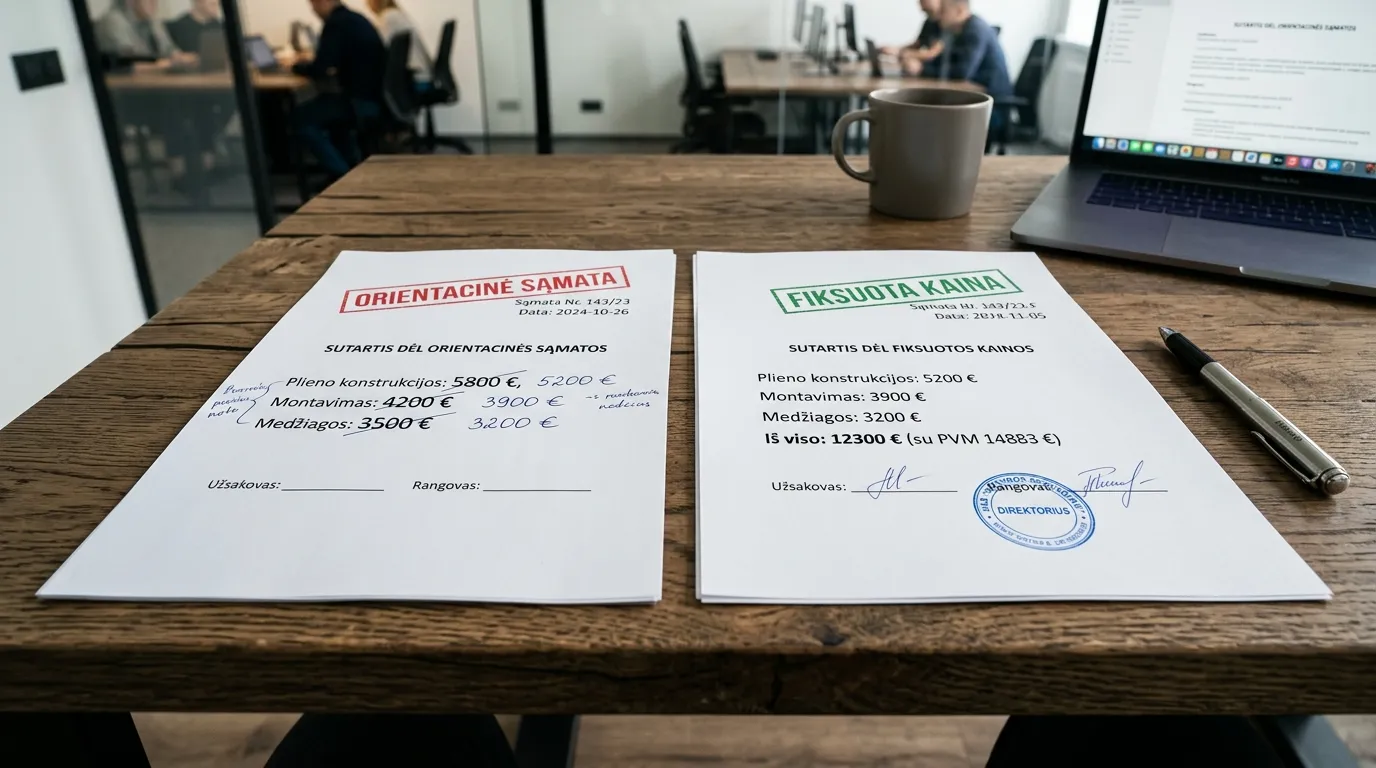 ORIENTACINĖ SĄMATA
Sąmata Nr. 143/23
Data: 2024-10-26
SUTARTIS DĖL ORIENTACINĖS SĄMATOS
Plieno konstrukcijos: 5800 €, 5200 €
Montavimas: 4200 € 3900 €
Medžiagos: 3500 € 3200 €
Užsakovas: Rangovas:
FIKSUOTA KAINA
SUTARTIS DĖL FIKSUOTOS KAINOS
Plieno konstrukcijos: 5200 €
Montavimas: 3900 €
Medžiagos: 3200 €
Iš viso: 12300 € (su PVM 14883 €)
Užsakovas:
DIREKTORIUS
SUTARTIS DĖL ORIENTACINĖS SĄMATOS